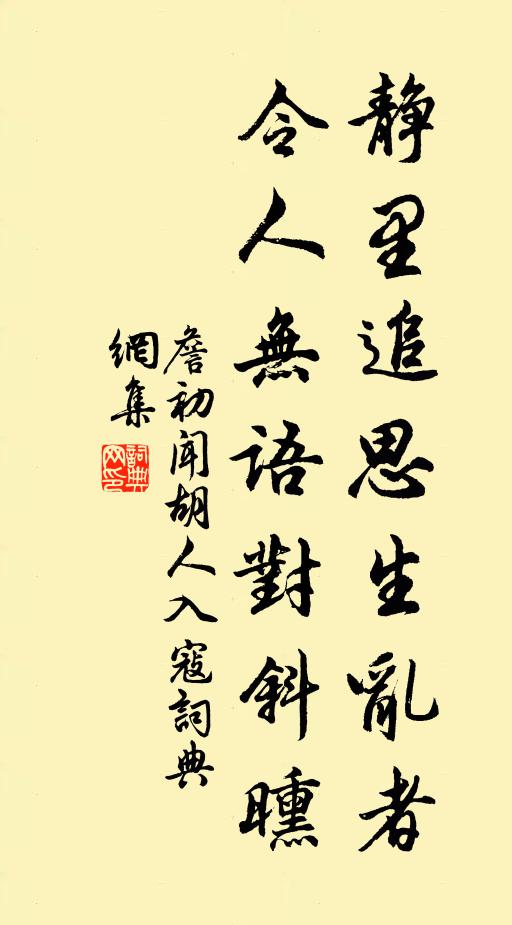 静里追思生亂者
令人無語對斜曛
詹初聞胡人入寇詞典
網集
詞典
网印